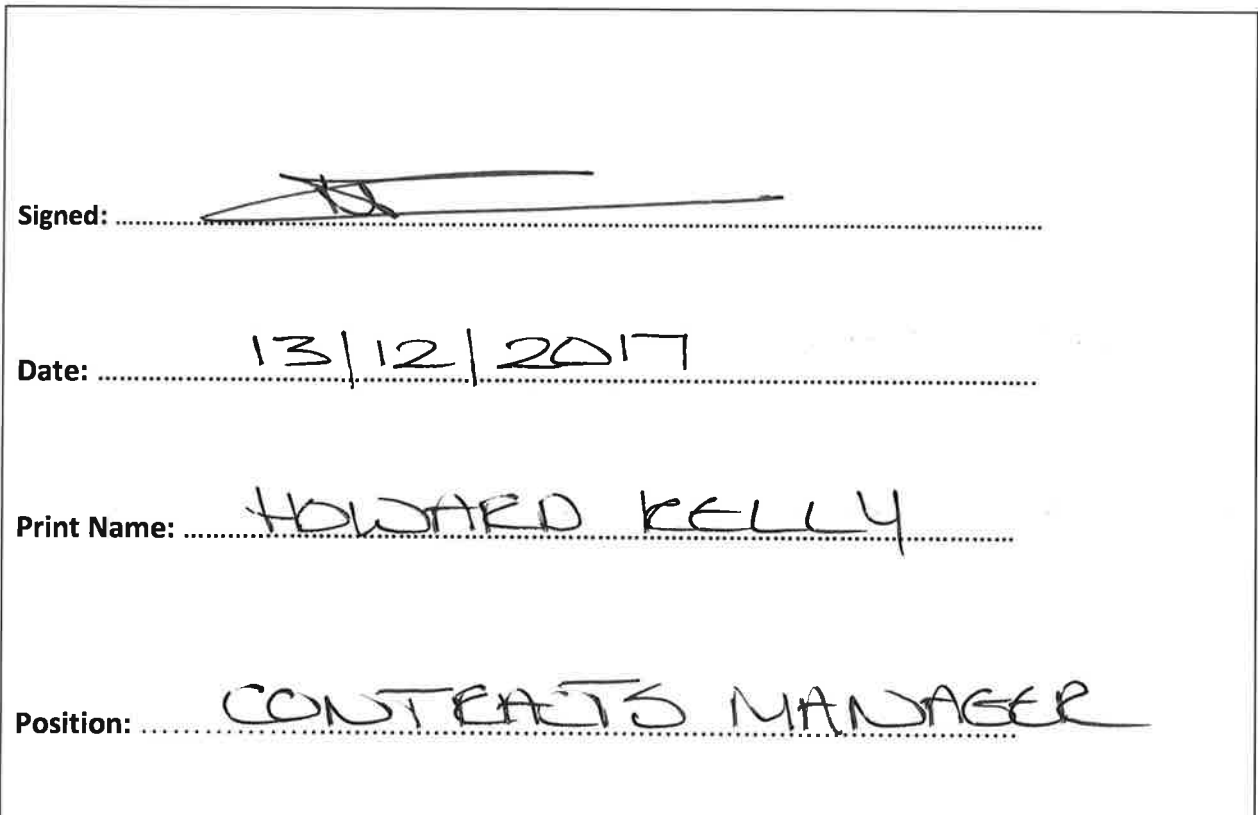 Signed:
Date: 13/12/2017
Print Name: HOWARD KELLY
Position: CONTRACTS MANAGER